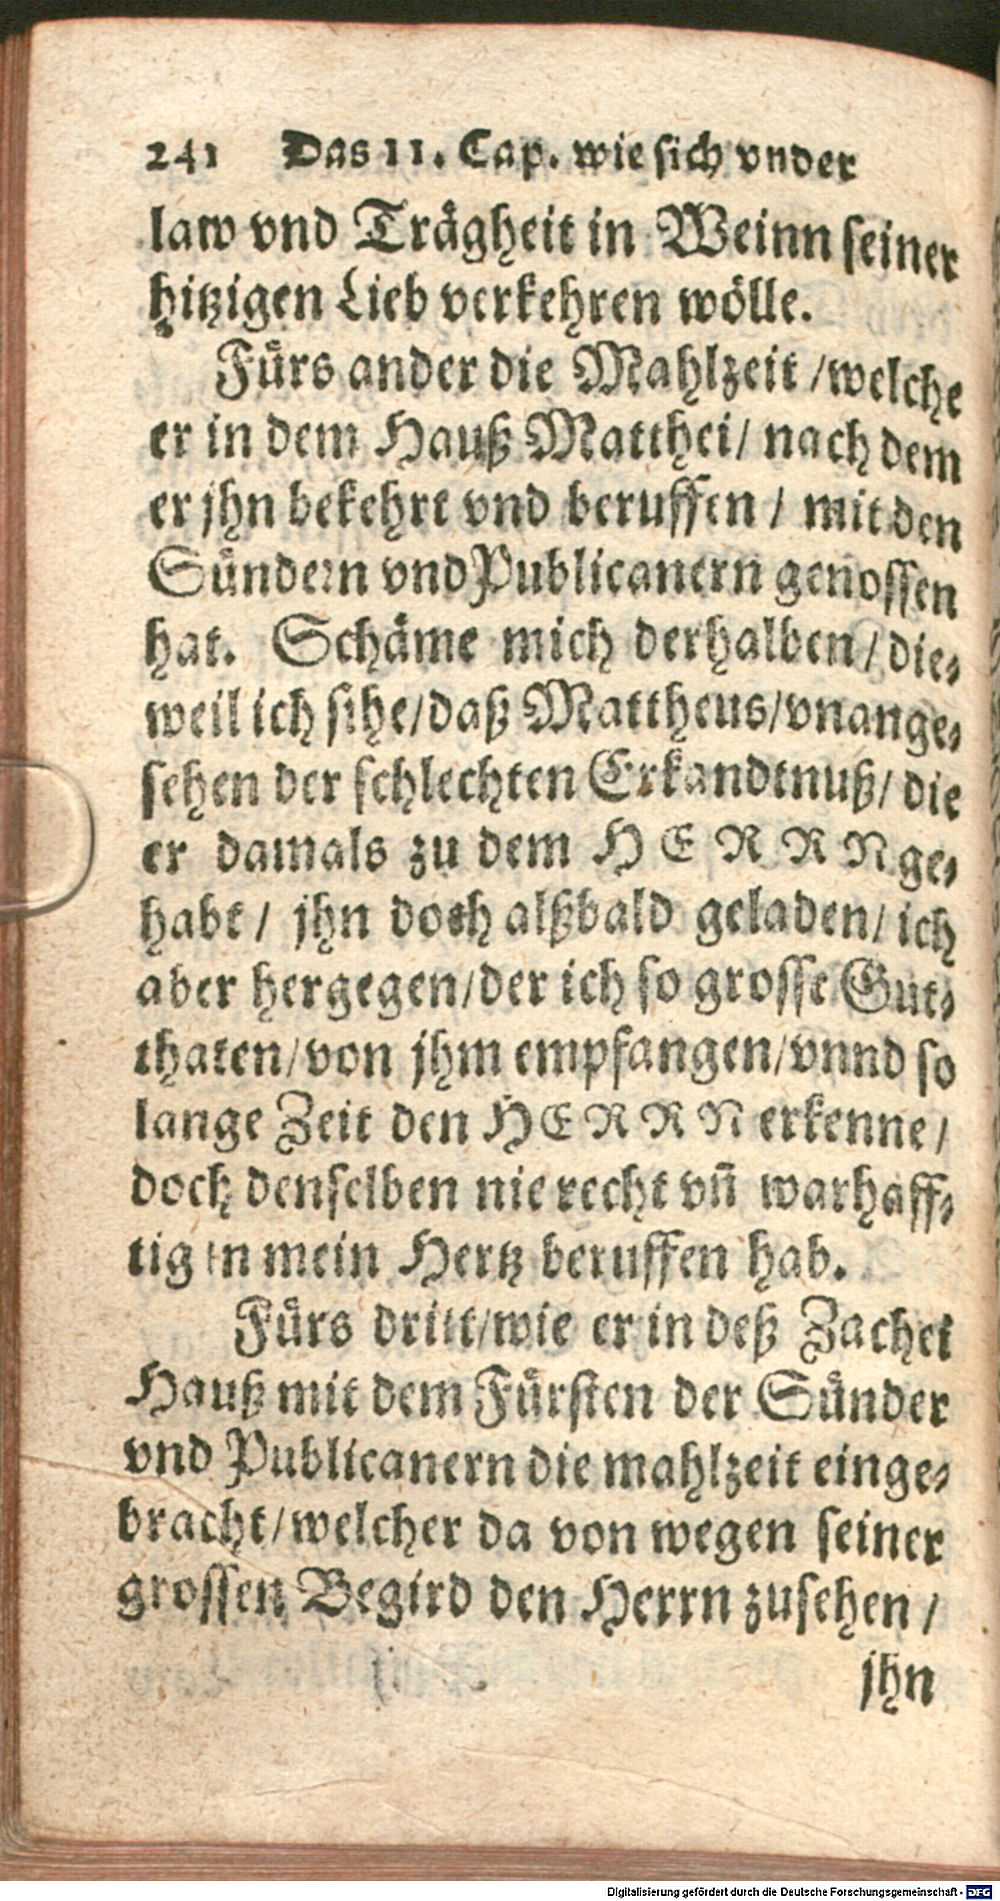 241 Das 11. Cap. wie sich vnder
law vnd Trägheit in Weinn seiner
hitzigen Lieb verkehren wölle.
Fürs ander die Mahlzeit / welche
er in dem Hauß Matthei / nach dem
er jhn bekehrt vnd beruffen / mit den
Sündern vnd Publicanern genossen
hat. Schäme mich derhalben / die⸗
weil ich sihe / daß Mattheus / vnange⸗
sehen der schlechten Erkandtnuß / die
er damals zu dem HERRN ge⸗
habt / jhn doch alßbald geladen / ich
aber hergegen / der ich so grosse Gut⸗
thaten / von jhm empfangen / vnnd so
lange Zeit den HERRN erkenne /
doch denselben nie recht vn̄ warhaff⸗
tig in mein Hertz beruffen hab.
Fürs dritt / wie er in deß Zachei
Hauß mit dem Fürsten der Sünder
vnd Publicanern die mahlzeit einge⸗
bracht / welcher da von wegen seiner
grossen Begird den Herrn zusehen /
jhn
Digitalisierung gefördert durch die Deutsche Forschungsgemeinschaft - DFG